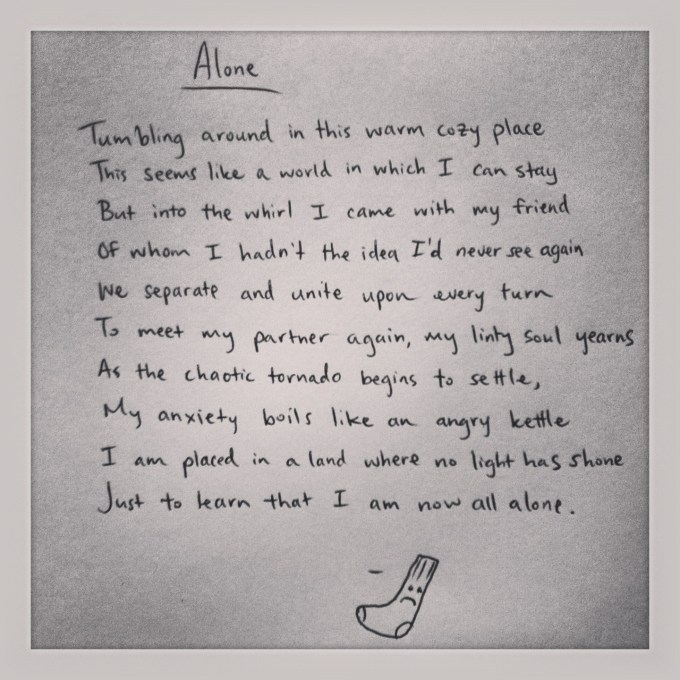 Alone
Tumbling around in this warm cozy place
This seems like a world in which I can stay
But into the whirl I came with my friend
Of whom I hadn't the idea I'd never see again
We separate and unite upon every turn
To meet my partner again, my linty soul yearns
As the chaotic tornado begins to settle,
My anxiety boils like an angry kettle
I am placed in a land where no light has shone
Just to learn that I am now all alone.
-